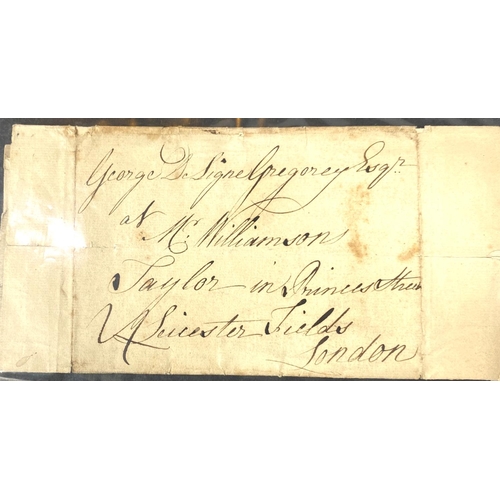 George De Signe Gregorey Esqr.
at Mr. Williamson
Taylor in Princes Street
Leicester Fields
London